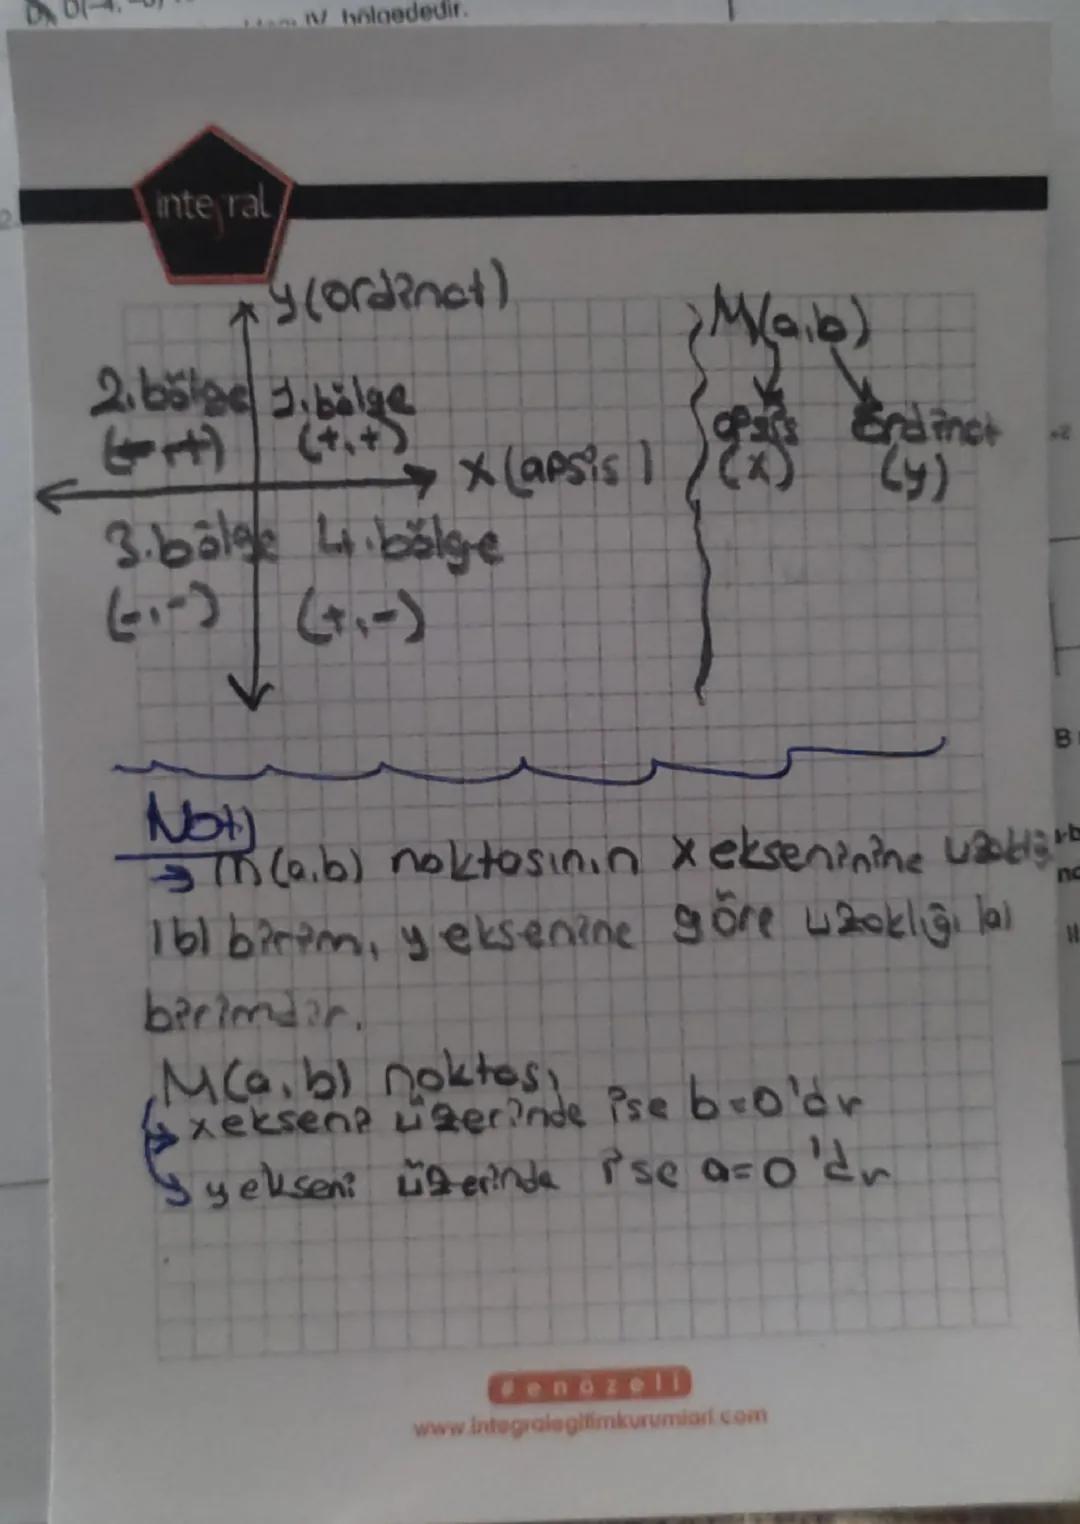 IV. bölgededir.
integral
y(ordinat)
M(a,b)
2.bölge 1.bölge
(-,+) (+,+)
apsis ordinat
(x) (y)
x(apsis)
3.bölge 4.bölge
(-,-) (+,-)
Not)
→ m(a,b) noktasının x eksenınine uzaklığı
|b| birim, y eksenine göre uzaklığı |a|
birimdir.
M(a,b) noktası
→ x ekseni üzerinde ise b=0'dır
→ y ekseni üzerinde ise a=0'dır
#enözeli
www.integralegitimkurumlari.com